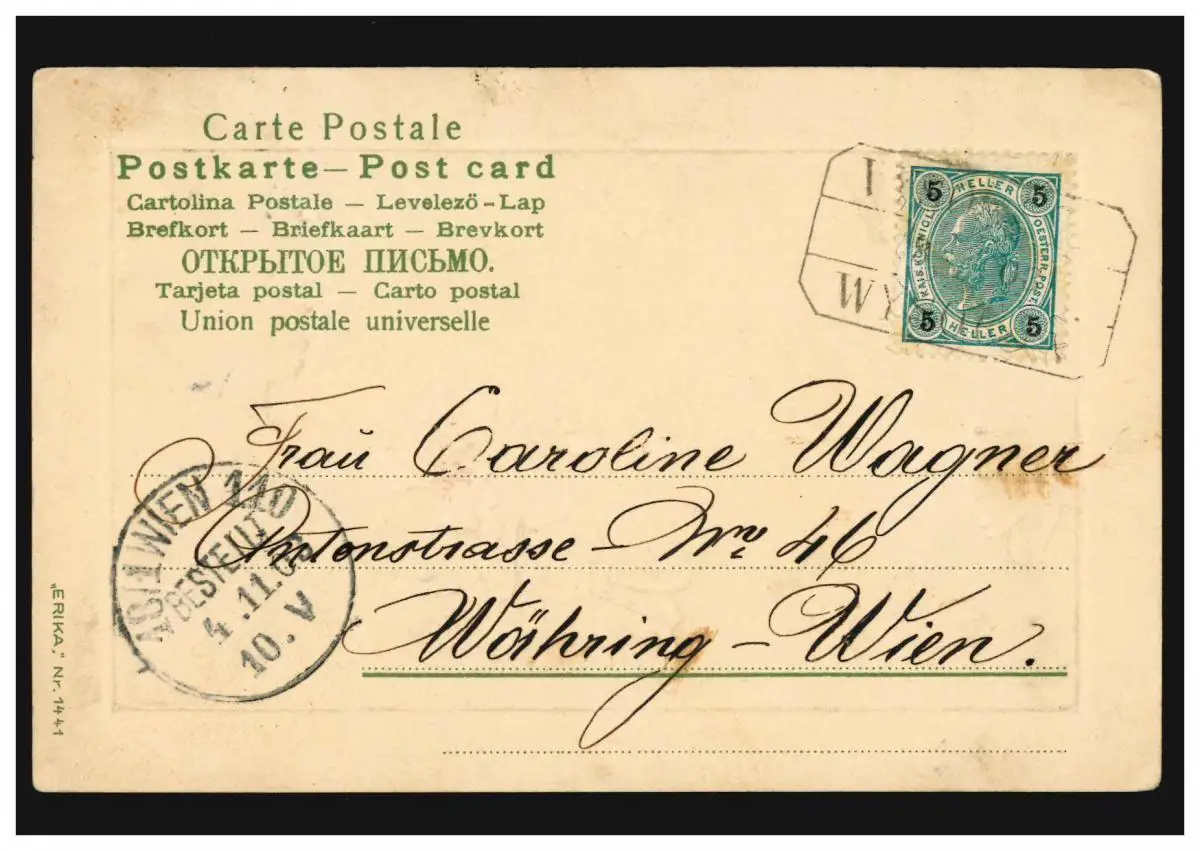 Carte Postale
Postkarte — Post card
Cartolina Postale — Levelező - Lap
Brefkort — Briefkaart — Brevkort
ОТКРЫТОЕ ПИСЬМО.
Tarjeta postal — Carto postal
Union postale universelle
5 HELLER 5
KAIS. KÖNIGL. OESTERR. POST.
5 HELLER 5
Frau Caroline Wagner
Antonstrasse - Nro 46
Währing - Wien.
WIEN 110
BESTELLT
4.11.0
10. V
"ERIKA," Nr. 1441